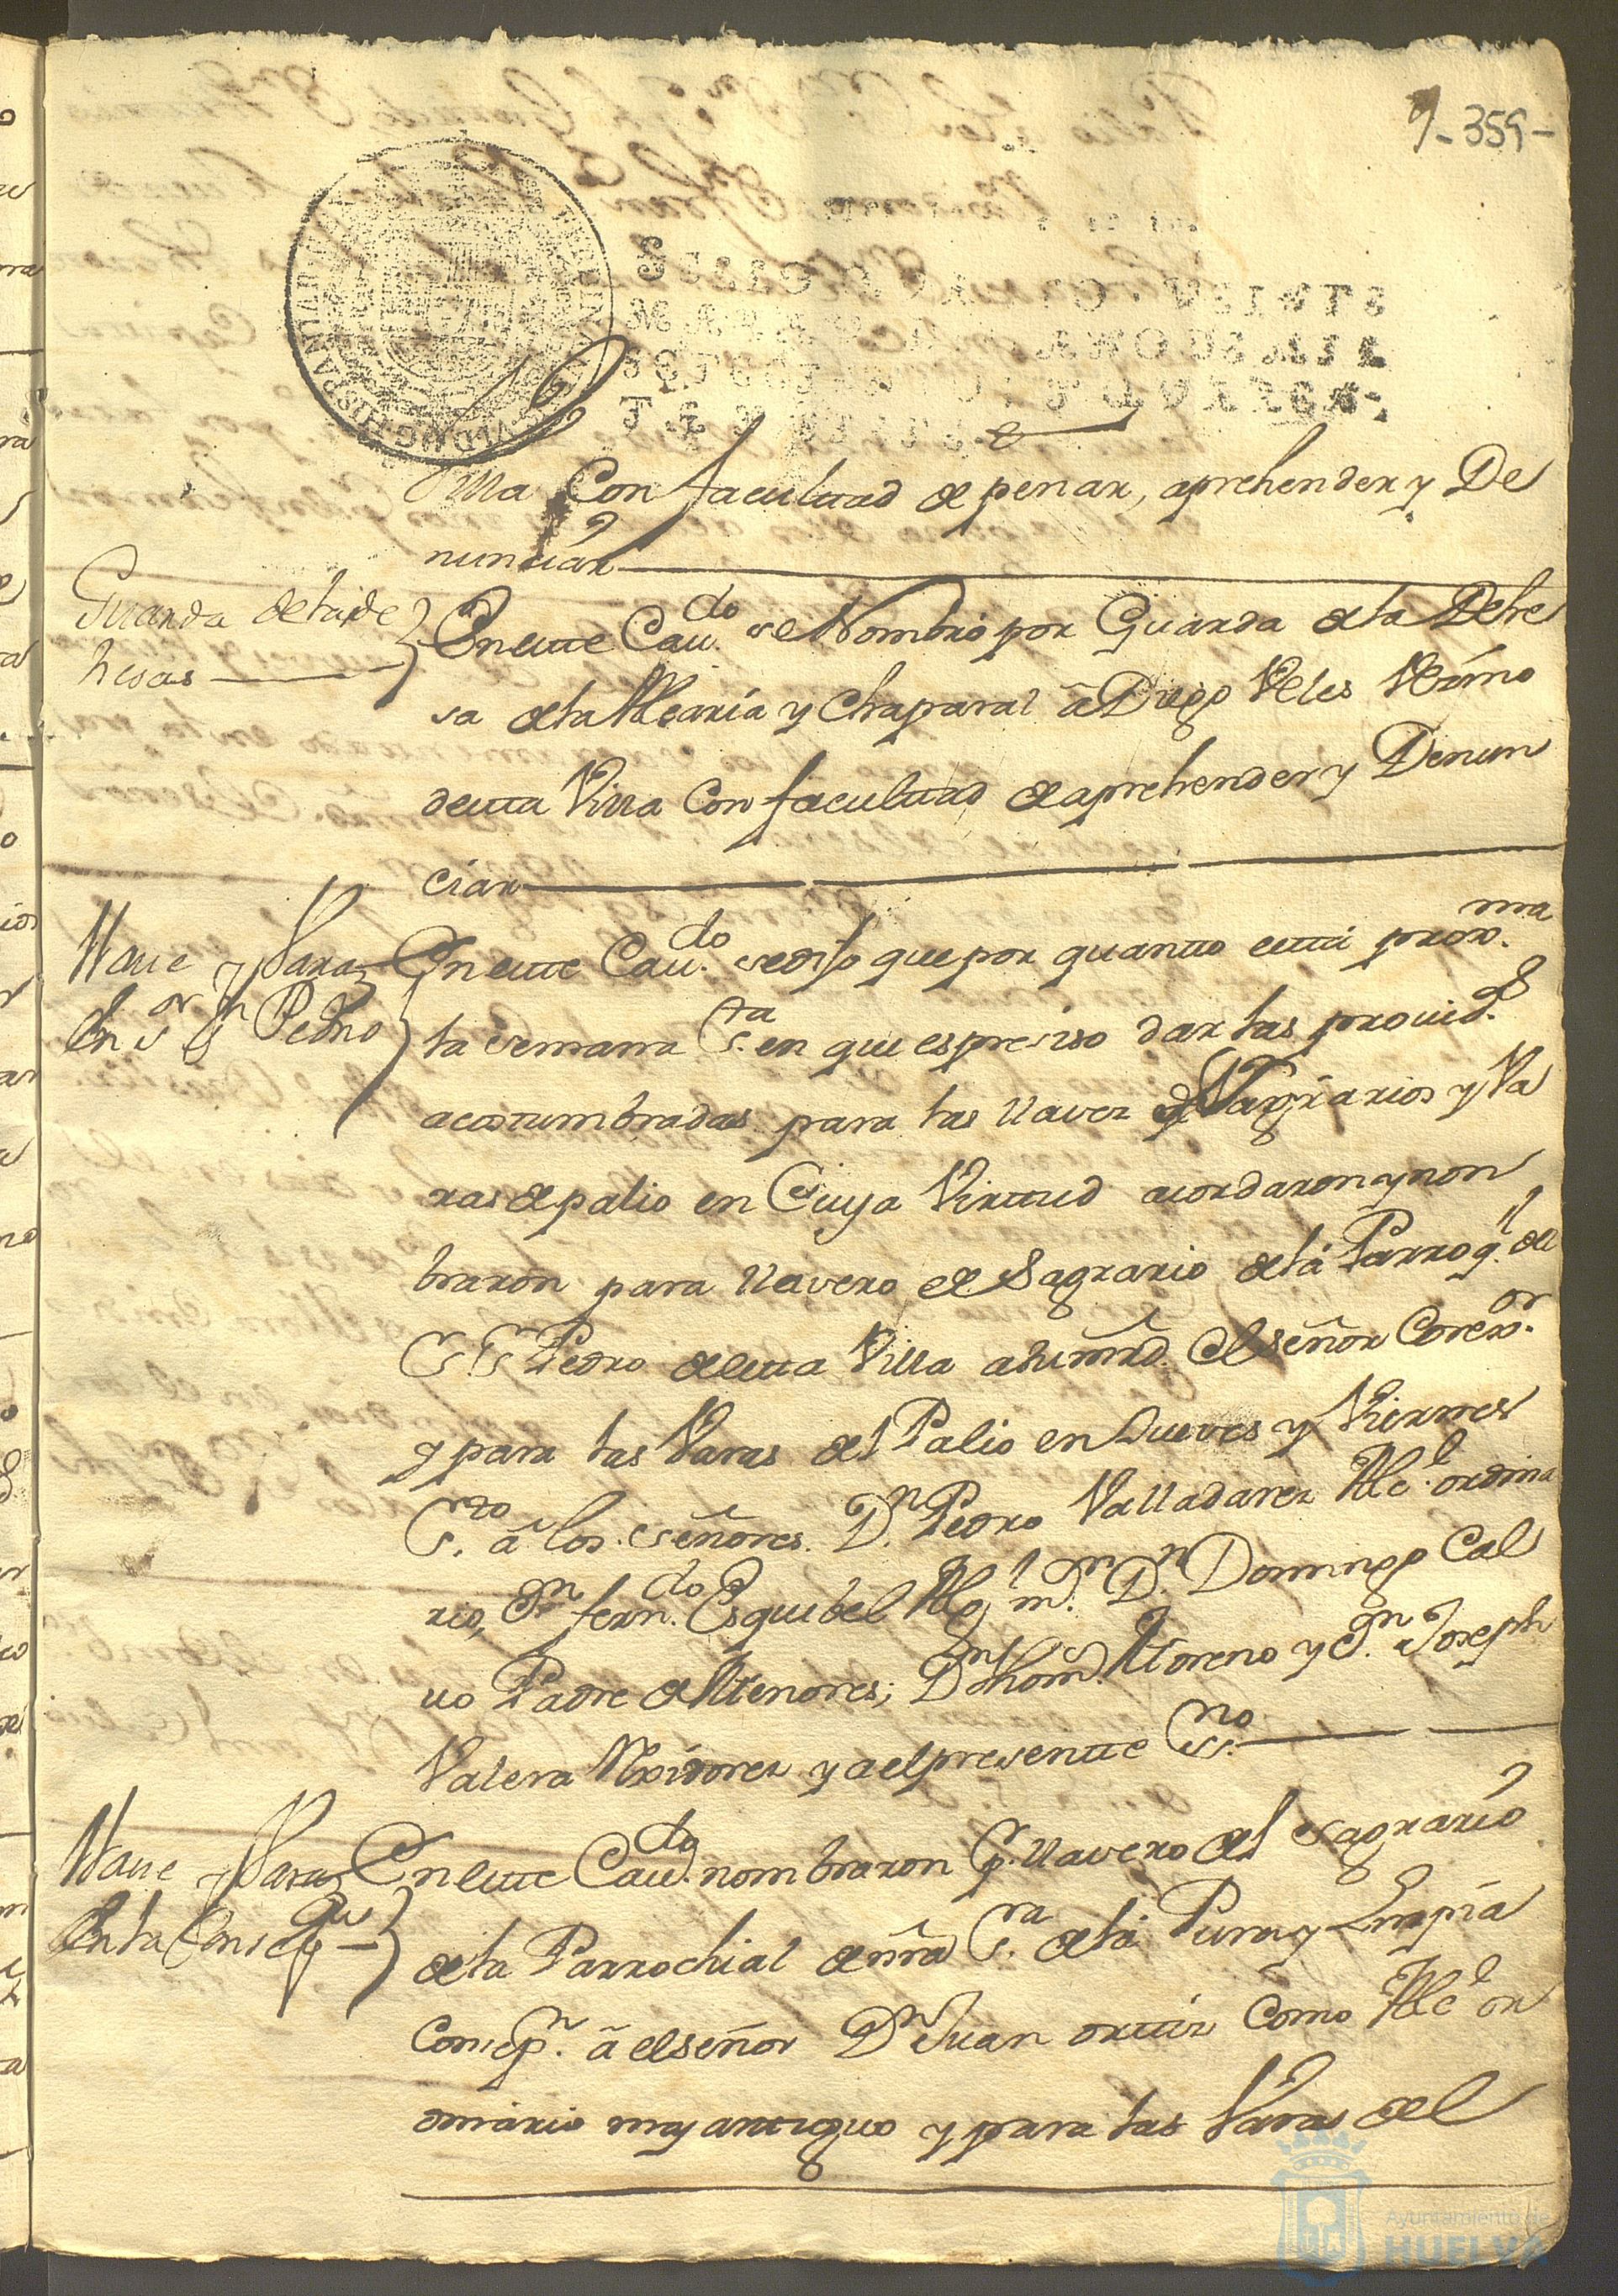 9-359-
Villa Con facultad de penar, aprehender y De
nunciar
Guarda de la de
hesas
En este Cau.do se Nombró por Guarda de la Dehe
sa de la Alcaría y Chaparal â Diego Veles Vezino
desta Villa Con facultad de aprehender y Denun
ciar
Llaue y Varas
En S.or S.n Pedro
En este Cau.do se dijo que por quanto está prox.ma
la semana S.ta en que es presiso dar las prouid.s
acostumbradas para las llaves de Sagrarios y Va
ras de palio en Cuya Virtud acordaron y non
braron para llavero de Sagrario de la Parroq.l de
S.r S.n Pedro de esta Villa a su mrd. el señor Correx.or
y para las Varas del Palio en Jueves y Viernes
S.to â los señores D.n Pedro Valladares Alc.e ordina
rio, D.n fern.do Esquibel Alg.l m.r D.n Domingo Cal
uo Padre de Menores; D.n thom.s Moreno y D.n Joseph
Valera Rexidores y a el presente Ss.no
Llaue y Varas
En la Consep.on
En este Cau.do nombraron p.r llavero del sagrario
de la Parrochial de nra S.ra de la Pura y Limpia
Consep.n â el señor D.n Juan ortiz Como Alc.e or
dinario mas antiguo y para las Varas del
Ayuntamiento de
HUELVA